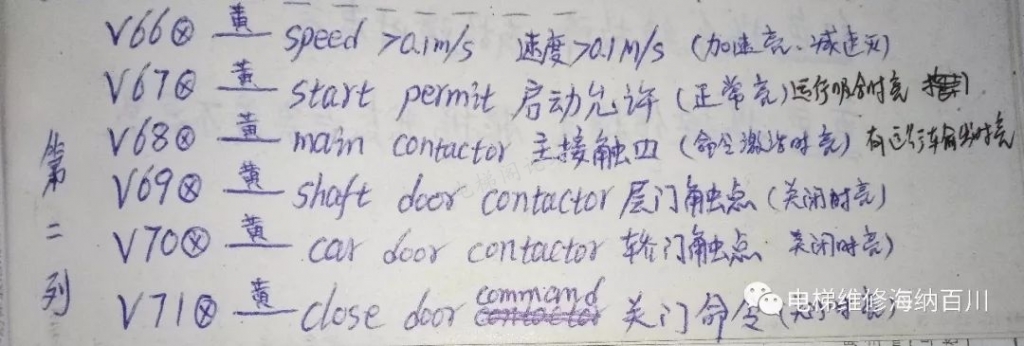 V66⊗ 黄 speed >0.1m/s 速度>0.1m/s (加速亮、减速灭)
V67⊗ 黄 start permit 启动允许 (正常亮) 运行吸合时亮
V68⊗ 黄 main contactor 主接触 (命令激活时亮)
第二列
V69⊗ 黄 shaft door contactor 层门触点 (关闭时亮)
V70⊗ 黄 car door contactor 轿门触点 关闭时亮)
V71⊗ 黄 close door command 关门命令
电梯维修海纳百川